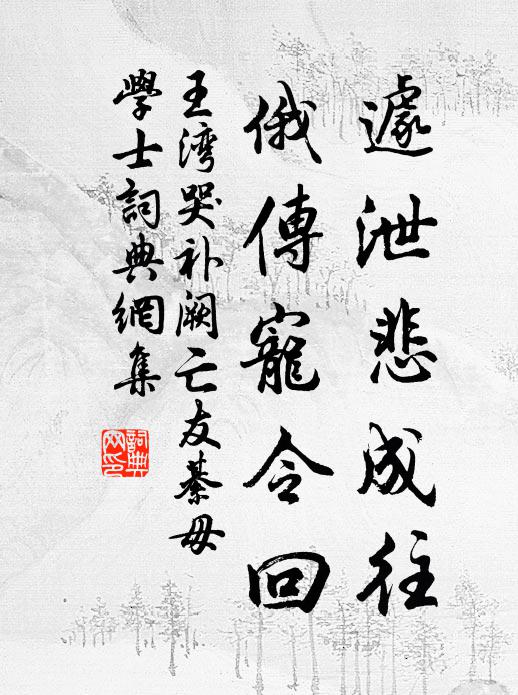 遽泄悲成往
俄傳寵令回
王湾哭补阙亡友綦毋
學士詞典網集
詞典
网印